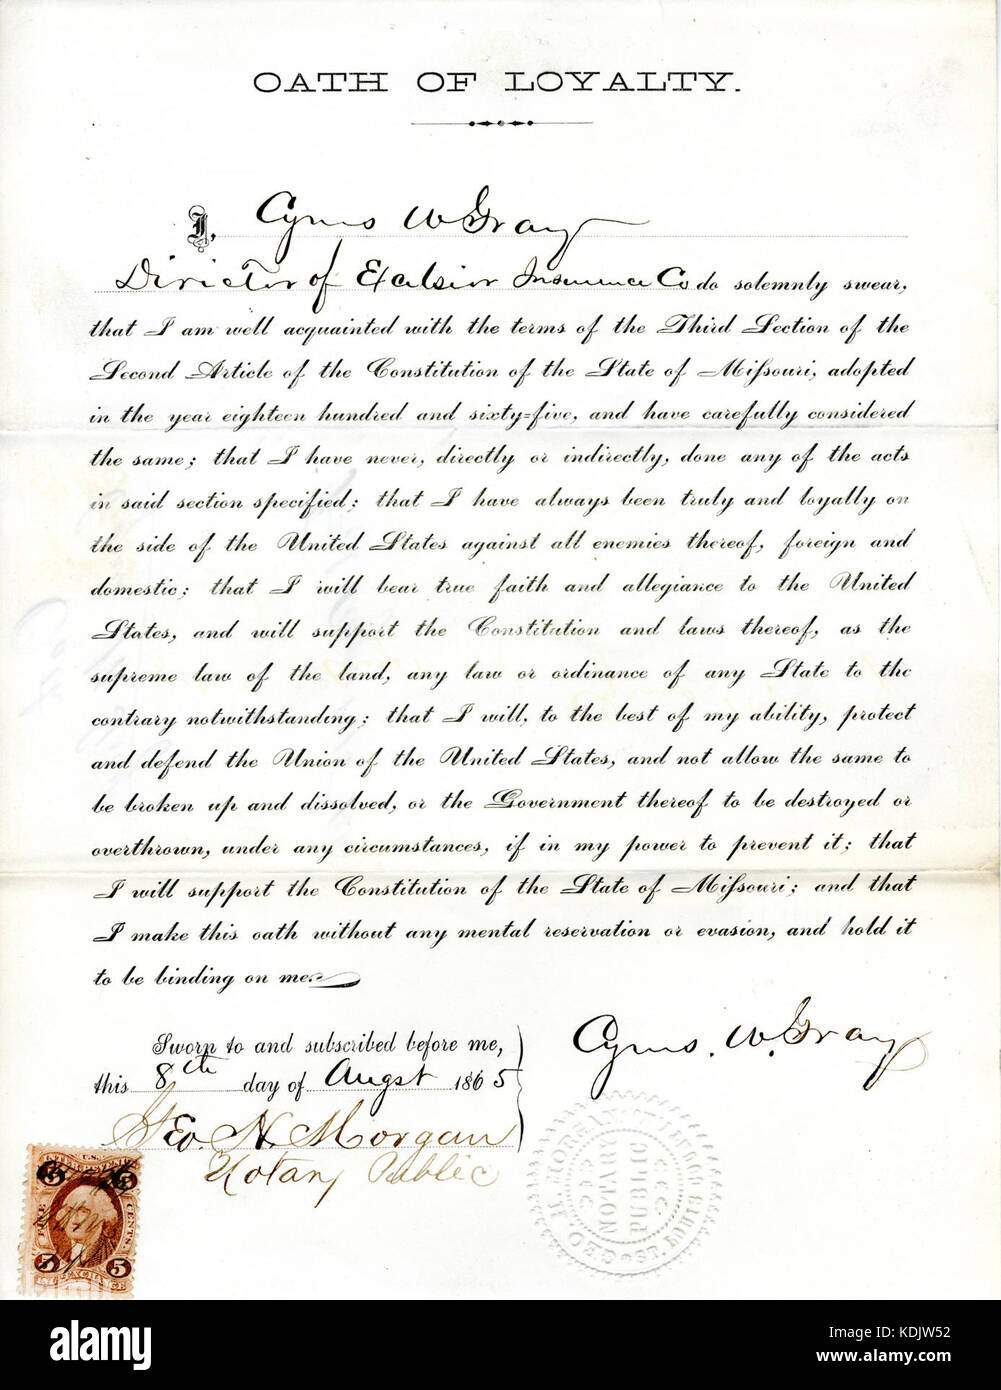 OATH OF LOYALTY.
I, Cyrus W Gray
Director of Excelsior Insurence Co do solemnly swear,
that I am well acquainted with the terms of the Third Section of the
Second Article of the Constitution of the State of Miſsouri, adopted
in the year eighteen hundred and sixty=five, and have carefully considered
the same; that I have never, directly or indirectly, done any of the acts
in said section specified; that I have always been truly and loyally on
the side of the United States against all enemies thereof, foreign and
domestic; that I will bear true faith and allegiance to the United
States, and will support the Constitution and laws thereof, as the
supreme law of the land, any law or ordinance of any State to the
contrary notwithstanding; that I will, to the best of my ability, protect
and defend the Union of the United States, and not allow the same to
be broken up and dissolved, or the Government thereof to be destroyed or
overthrown, under any circumstances, if in my power to prevent it; that
I will support the Constitution of the State of Miſsouri; and that
I make this oath without any mental reservation or evasion, and hold it
to be binding on me.
Sworn to and subscribed before me,
this 8th day of Augst 1865
Cyrus. W. Gray
Geo. N. Morgan
Notary Public
NOTARY
PUBLIC
ST. LOUIS
U.S.
5 5
FIVE CENTS
5 5
alamy
Image ID: KDJW52
www.alamy.com